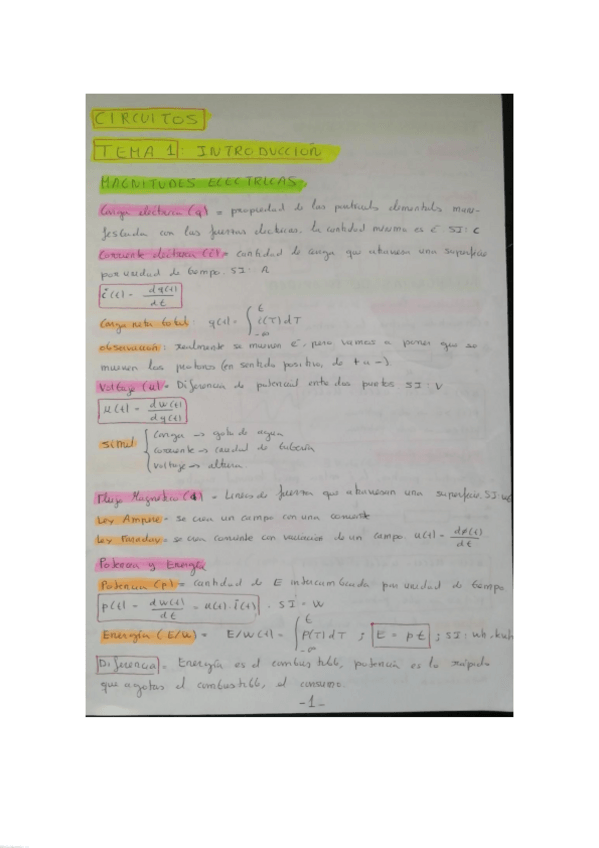 CIRCUITOS
TEMA 1: INTRODUCCIÓN
MAGNITUDES ELECTRICAS
Carga electrica (q) = propiedad de las particulas elementales mani-
festada con las fuerzas electricas. la cantidad minima es e⁻ SI: C
Corriente electrica (i) = cantidad de carga que atraviesa una superficie
por unidad de tiempo. SI: A
i(t) = dq(t)/dt
Carga neta total: q(t) = ∫_{-∞}^{t} i(T)dT
Observación: realmente se mueven e⁻, pero vamos a poner que se
mueven los protones (en sentido positivo, de + a -)
Voltaje (u) = Diferencia de potencial entre dos puntos SI: V
u(t) = dw(t)/dq(t)
Simil { Carga → gota de agua
corriente → caudal de tubería
voltaje → altura
Flujo Magnetico (ϕ) = Lineas de fuerza que atraviesan una superficie. SI:
Ley Ampere = se crea un campo con una corriente
Ley Faraday = se crea corriente con variación de un campo. u(t) = dϕ(t)/dt
Potencia y Energía
Potencia (p) = cantidad de E intercambiada por unidad de tiempo
p(t) = dw(t)/dt = u(t)·i(t) . SI = W
Energía (E/W) = E/W(t) = ∫_{-∞}^{t} P(T)dT ; E = p·t ; SI: wh, kwh
Diferencia = Energía es el combustible, potencia es lo rápido
que agotas el combustible, el consumo.
-1-